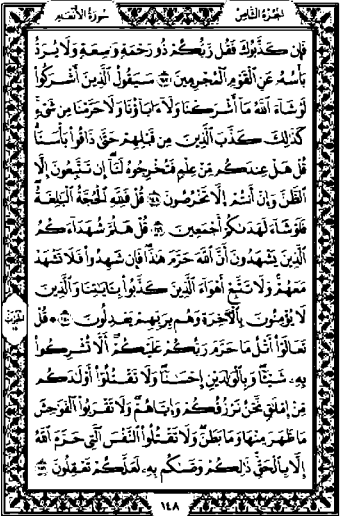 الجزء الثامن سورة الأنعام
فَإِن كَذَّبُوكَ فَقُل رَّبُّكُمْ ذُو رَحْمَةٍ وَاسِعَةٍ وَلَا يُرَدُّ
بَأْسُهُ عَنِ الْقَوْمِ الْمُجْرِمِينَ ١٤٧ سَيَقُولُ الَّذِينَ أَشْرَكُوا
لَوْ شَاءَ اللَّهُ مَا أَشْرَكْنَا وَلَا ءَابَاؤُنَا وَلَا حَرَّمْنَا مِن شَيْءٍ
كَذَٰلِكَ كَذَّبَ الَّذِينَ مِن قَبْلِهِمْ حَتَّىٰ ذَاقُوا بَأْسَنَا
قُلْ هَلْ عِندَكُم مِّنْ عِلْمٍ فَتُخْرِجُوهُ لَنَا إِن تَتَّبِعُونَ إِلَّا
الظَّنَّ وَإِنْ أَنتُمْ إِلَّا تَخْرُصُونَ ١٤٨ قُلْ فَلِلَّهِ الْحُجَّةُ الْبَالِغَةُ
فَلَوْ شَاءَ لَهَدَاكُمْ أَجْمَعِينَ ١٤٩ قُلْ هَلُمَّ شُهَدَاءَكُمُ
الَّذِينَ يَشْهَدُونَ أَنَّ اللَّهَ حَرَّمَ هَٰذَا فَإِن شَهِدُوا فَلَا تَشْهَدْ
مَعَهُمْ وَلَا تَتَّبِعْ أَهْوَاءَ الَّذِينَ كَذَّبُوا بِـَٔايَاتِنَا وَالَّذِينَ
لَا يُؤْمِنُونَ بِالْـَٔاخِرَةِ وَهُم بِرَبِّهِمْ يَعْدِلُونَ ١٥٠ ۞ قُلْ
تَعَالَوْا أَتْلُ مَا حَرَّمَ رَبُّكُمْ عَلَيْكُمْ أَلَّا تُشْرِكُوا
بِهِ شَيْـًٔا وَبِالْوَالِدَيْنِ إِحْسَانًا وَلَا تَقْتُلُوا أَوْلَادَكُم
مِّنْ إِمْلَاقٍ نَّحْنُ نَرْزُقُكُمْ وَإِيَّاهُمْ وَلَا تَقْرَبُوا الْفَوَاحِشَ
مَا ظَهَرَ مِنْهَا وَمَا بَطَنَ وَلَا تَقْتُلُوا النَّفْسَ الَّتِي حَرَّمَ اللَّهُ
إِلَّا بِالْحَقِّ ذَٰلِكُمْ وَصَّاكُم بِهِ لَعَلَّكُمْ تَعْقِلُونَ ١٥١
١٤٨